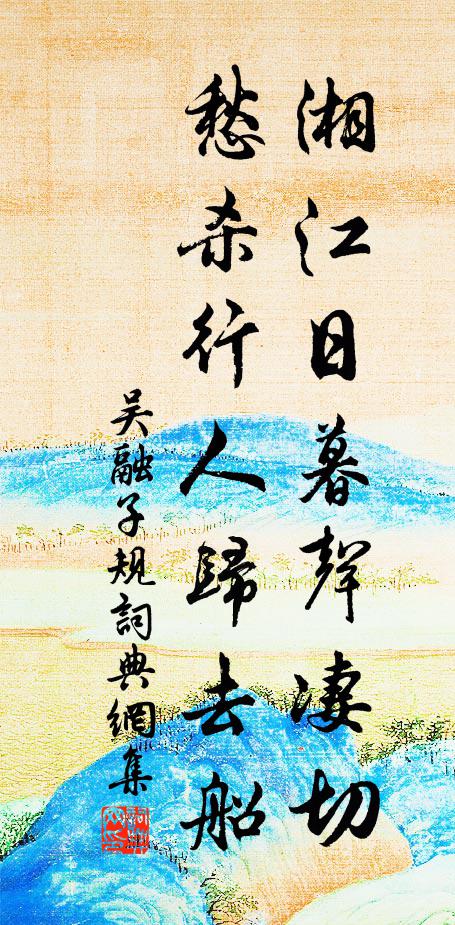 湘江日暮聲凄切
愁杀行人歸去船
吴融子规詞典網集